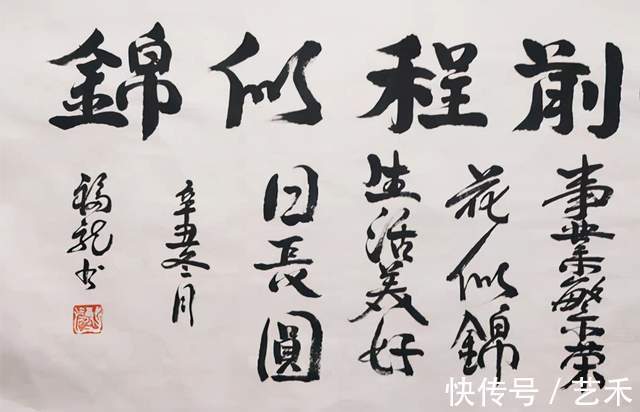 前程似錦
事業繁荣
花似錦
生活美好
日長圓
辛丑冬月
福龙书
快传号 / 艺禾